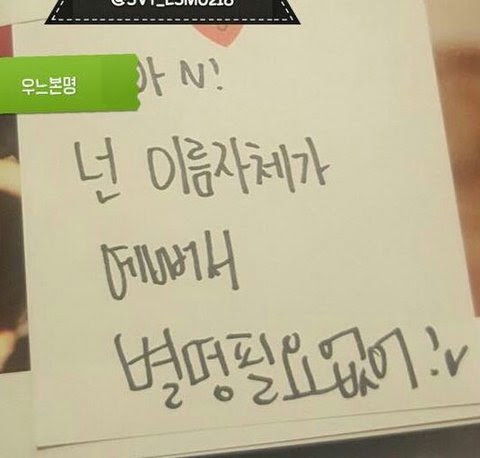 @SVT_LSM0218
우느본명
아 N!
넌 이름자체가
예뻐서
별명필요없어!